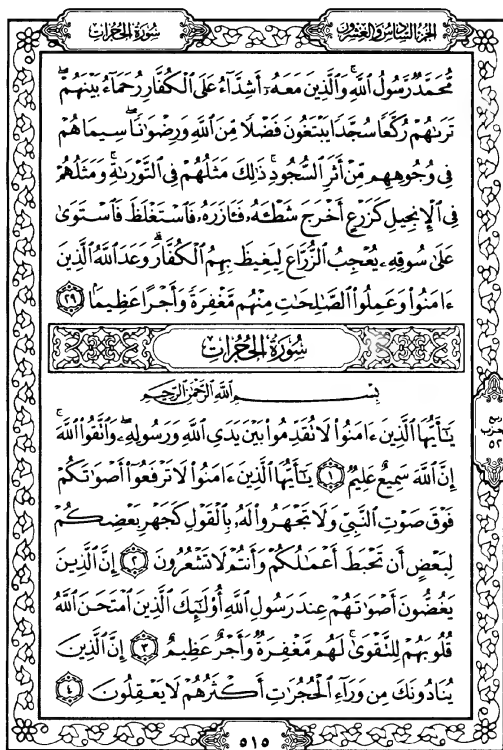 سُورَةُ الحُجُرَاتِ
الجُزْءُ السَّادِسُ وَالعِشْرُونَ
مُّحَمَّدٌ رَّسُولُ ٱللَّهِ وَٱلَّذِينَ مَعَهُۥٓ أَشِدَّآءُ عَلَى ٱلۡكُفَّارِ رُحَمَآءُ بَيۡنَهُمۡۖ
تَرَىٰهُمۡ رُكَّعٗا سُجَّدٗا يَبۡتَغُونَ فَضۡلٗا مِّنَ ٱللَّهِ وَرِضۡوَٰنٗاۖ سِيمَاهُمۡ
فِي وُجُوهِهِم مِّنۡ أَثَرِ ٱلسُّجُودِۚ ذَٰلِكَ مَثَلُهُمۡ فِي ٱلتَّوۡرَىٰةِۚ وَمَثَلُهُمۡ
فِي ٱلۡإِنجِيلِ كَزَرۡعٍ أَخۡرَجَ شَطۡـَٔهُۥ فَـَٔازَرَهُۥ فَٱسۡتَغۡلَظَ فَٱسۡتَوَىٰ
عَلَىٰ سُوقِهِۦ يُعۡجِبُ ٱلزُّرَّاعَ لِيَغِيظَ بِهِمُ ٱلۡكُفَّارَۗ وَعَدَ ٱللَّهُ ٱلَّذِينَ
ءَامَنُواْ وَعَمِلُواْ ٱلصَّٰلِحَٰتِ مِنۡهُم مَّغۡفِرَةٗ وَأَجۡرًا عَظِيمَۢا ٢٩
سُورَةُ الحُجُرَاتِ
بِسْمِ اللَّهِ الرَّحْمَٰنِ الرَّحِيمِ
يَـٰٓأَيُّهَا ٱلَّذِينَ ءَامَنُواْ لَا تُقَدِّمُواْ بَيۡنَ يَدَيِ ٱللَّهِ وَرَسُولِهِۦۖ وَٱتَّقُواْ ٱللَّهَۚ
إِنَّ ٱللَّهَ سَمِيعٌ عَلِيمٞ ١ يَـٰٓأَيُّهَا ٱلَّذِينَ ءَامَنُواْ لَا تَرۡفَعُوٓاْ أَصۡوَٰتَكُمۡ
فَوۡقَ صَوۡتِ ٱلنَّبِيِّ وَلَا تَجۡهَرُواْ لَهُۥ بِٱلۡقَوۡلِ كَجَهۡرِ بَعۡضِكُمۡ
لِبَعۡضٍ أَن تَحۡبَطَ أَعۡمَٰلُكُمۡ وَأَنتُمۡ لَا تَشۡعُرُونَ ٢ إِنَّ ٱلَّذِينَ
يَغُضُّونَ أَصۡوَٰتَهُمۡ عِندَ رَسُولِ ٱللَّهِ أُوْلَـٰٓئِكَ ٱلَّذِينَ ٱمۡتَحَنَ ٱللَّهُ
قُلُوبَهُمۡ لِلتَّقۡوَىٰۚ لَهُم مَّغۡفِرَةٞ وَأَجۡرٌ عَظِيمٌ ٣ إِنَّ ٱلَّذِينَ
يُنَادُونَكَ مِن وَرَآءِ ٱلۡحُجُرَٰتِ أَكۡثَرُهُمۡ لَا يَعۡقِلُونَ ٤
٥١٥